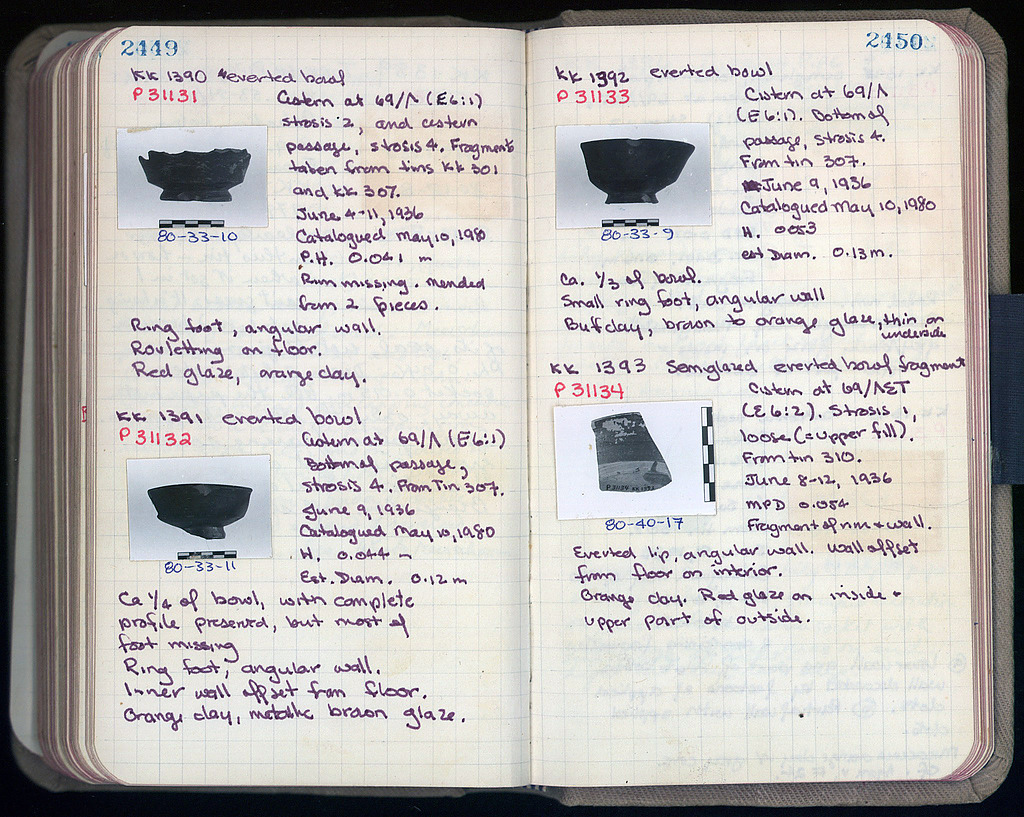 2449
KK 1390 everted bowl
P 31131
Cistern at 69/Λ (E6:1)
strosis 2, and cistern
passage, strosis 4. Fragments
taken from tins KK 301
and KK 307.
June 4-11, 1936
Catalogued May 10, 1980
P.H. 0.041 m
Rim missing. mended
from 2 pieces.
80-33-10
Ring foot, angular wall.
Rouletting on floor.
Red glaze, orange clay.
KK 1391 everted bowl
P 31132
Cistern at 69/Λ (E6:1)
Bottom of passage,
strosis 4. From Tin 307.
June 9, 1936
Catalogued May 10, 1980
H. 0.044 m
Est. Diam. 0.12 m
80-33-11
Ca 1/4 of bowl, with complete
profile preserved, but most of
foot missing
Ring foot, angular wall.
Inner wall offset from floor.
Orange clay, metallic brown glaze.
2450
KK 1392 everted bowl
P 31133
Cistern at 69/Λ
(E6:1). Bottom of
passage, strosis 4.
From tin 307.
June 9, 1936
Catalogued May 10, 1980
H. 0053
est Diam. 0.13 m.
80-33-9
Ca. 1/3 of bowl.
Small ring foot, angular wall
Buff clay, brown to orange glaze, thin on
underside
KK 1393 Semiglazed everted bowl fragment
P 31134
Cistern at 69/ΛΣΤ
(E 6:2). Strosis 1,
loose (= upper fill).
From tin 310.
June 8-12, 1936
MPD 0.054
Fragment of rim + wall.
P 31134 KK 1393
80-40-17
Everted lip, angular wall. Wall offset
from floor on interior.
Orange clay. Red glaze on inside +
upper part of outside.